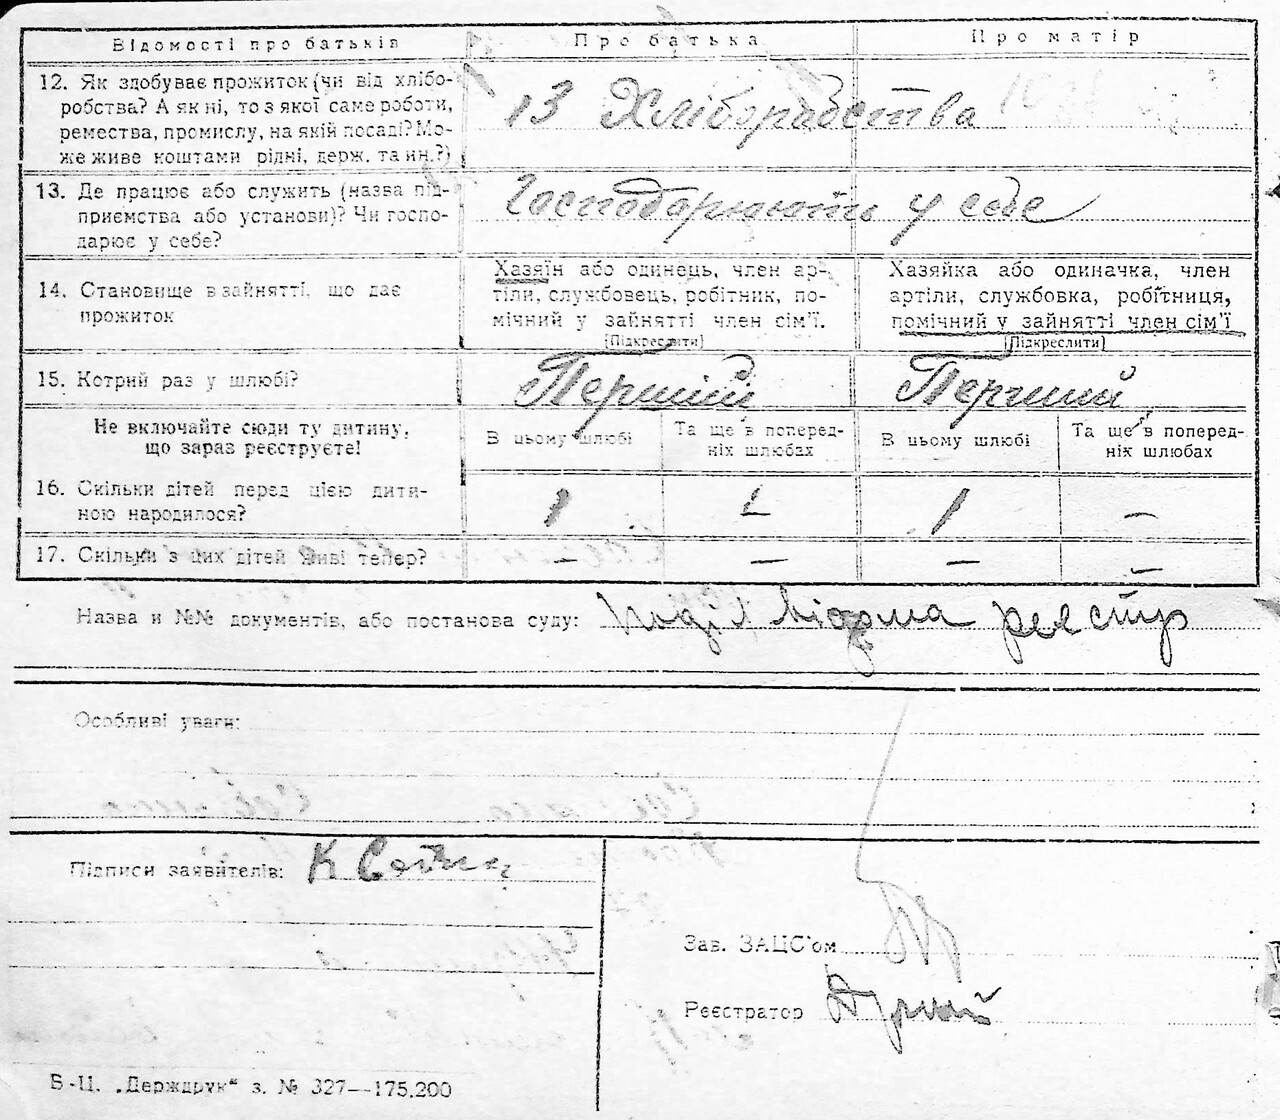 Відомості про батьків
Про батька
Про матір
12. Як здобуває прожиток (чи від хлібо-
робства? А як ні, то з якої саме роботи,
ремества, промислу, на якій посаді? Мо-
же живе коштами рідні, держ. та ин.?)
Із Хліборобства
13. Де працює або служить (назва під-
приємства або установи)? Чи госпо-
дарює у себе?
Господарюють у себе
14. Становище в зайнятті, що дає
прожиток
Хазяїн або одинець, член ар-
тіли, службовець, робітник, по-
мічний у зайнятті член сім'ї.
[Підкреслити]
Хазяйка або одиначка, член
артіли, службовка, робітниця,
помічний у зайнятті член сім'ї
[Підкреслити]
15. Котрий раз у шлюбі?
Перший
Перший
Не включайте сюди ту дитину,
що зараз реєструєте!
В цьому шлюбі
Та ще в поперед-
ніх шлюбах
В цьому шлюбі
Та ще в поперед-
ніх шлюбах
16. Скільки дітей перед цією дити-
ною народилося?
1 – 1 –
17. Скільки з цих дітей живі тепер?
– – – –
Назва и №№ документів, або постанова суду:
реєстр
Особливі уваги:
Підписи заявителів: К
Зав. ЗАЦС'ом
Реєстратор
Б-Ц. „Держдрук“ з. № 327—175.200